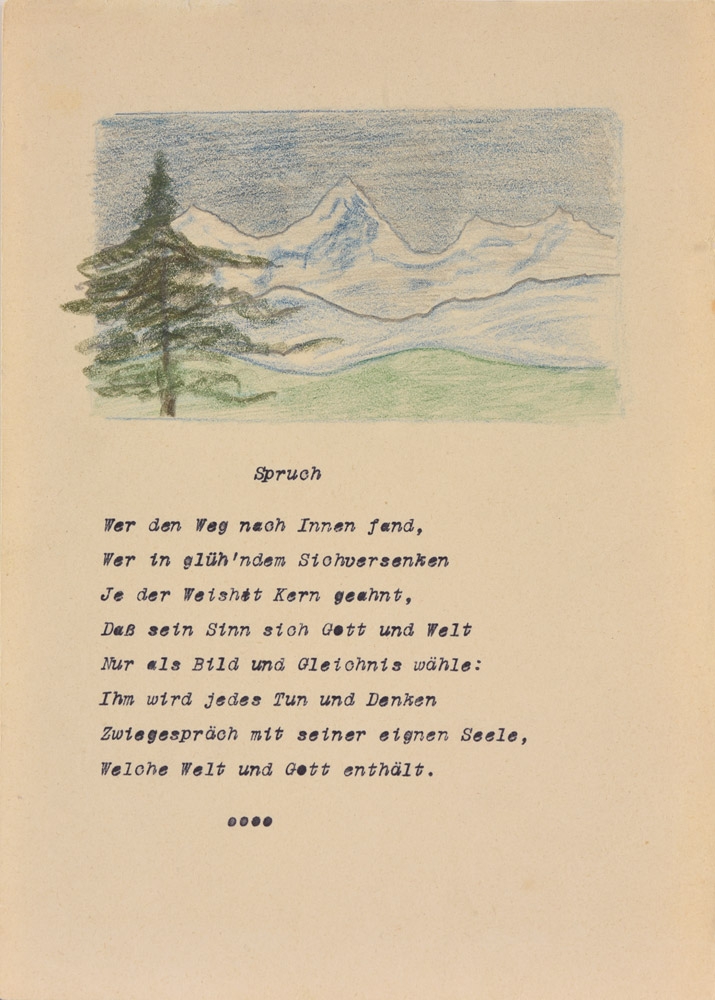 Spruch
Wer den Weg nach Innen fand,
Wer in glüh'ndem Sichversenken
Je der Weisheit Kern geahnt,
Daß sein Sinn sich Gott und Welt
Nur als Bild und Gleichnis wähle:
Ihm wird jedes Tun und Denken
Zwiegespräch mit seiner eignen Seele,
Welche Welt und Gott enthält.